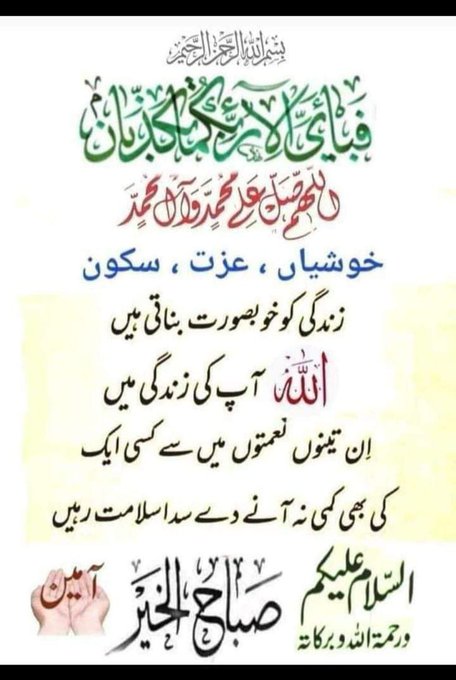 بسم اللہ الرحمن الرحیم
فبأي آلاء ربكما تكذبان
اللهم صل على محمد وآل محمد
خوشیاں ، عزت ، سکون
زندگی کو خوبصورت بناتی ہیں
اللہ آپ کی زندگی میں
اِن تینوں نعمتوں میں سے کسی ایک
کی بھی کمی نہ آنے دے سدا سلامت رہیں
السلام علیکم
ورحمۃ اللہ وبرکاتہ
صباح الخیر
آمین